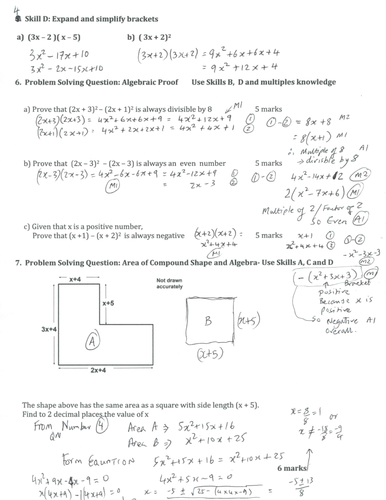 4
Skill D: Expand and simplify brackets
a) (3x – 2)( x – 5)
b) ( 3x + 2)²
3x² - 17x + 10
3x² - 2x - 15x + 10
(3x+2)(3x+2) = 9x² + 6x + 6x + 4
= 9x² + 12x + 4
6. Problem Solving Question: Algebraic Proof Use Skills B, D and multiples knowledge
a) Prove that (2x + 3)² – (2x + 1)² is always divisible by 8 M1 5 marks
(2x+3)(2x+3) = 4x² + 6x + 6x + 9 = 4x² + 12x + 9 ①
(2x+1)(2x+1) = 4x² + 2x + 2x + 1 = 4x² + 4x + 1 ②
①-② = 8x + 8 M2
= 8(x+1) M1
∴ Multiple of 8 A1
→ divisible by 8
b) Prove that (2x – 3)² – (2x – 3) is always an even number 5 marks
(2x-3)(2x-3) = 4x² - 6x - 6x + 9 = 4x² - 12x + 9 ①
M1 = 2x - 3 ②
①-② 4x² - 14x + 12 M2
2(x² - 7x + 6) M1
Multiple of 2/Factor of 2
So Even A1
c) Given that x is a positive number,
Prove that (x +1) – (x + 2)² is always negative 5 marks
(x+2)(x+2) =
x² + 4x + 4
M1
x+1 ①
x² + 4x + 4 ②
①-②
- x² - 3x - 3
M2
- (x² + 3x + 3) M1
Bracket
positive
Because x is
positive
So negative A1
overall.
7. Problem Solving Question: Area of Compound Shape and Algebra- Use Skills A, C and D
x+4
Not drawn
accurately
x+5
3x+4
A
2x+4
B
(x+5)
(x+5)
The shape above has the same area as a square with side length (x + 5).
Find to 2 decimal places the value of x
From Number ④
QN
Area A ⇒ 5x² + 15x + 16
Area B ⇒ x² + 10x + 25
Form Equation 5x² + 15x + 16 = x² + 10x + 25
6 marks
4x² + 5x - 9 = 0
4x² + 9x - 4x - 9 = 0
x(4x+9) - 1(4x+9) = 0